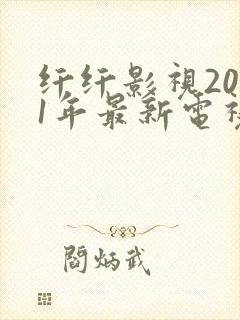 纤纤影視20
1年最新電視
閻炳武